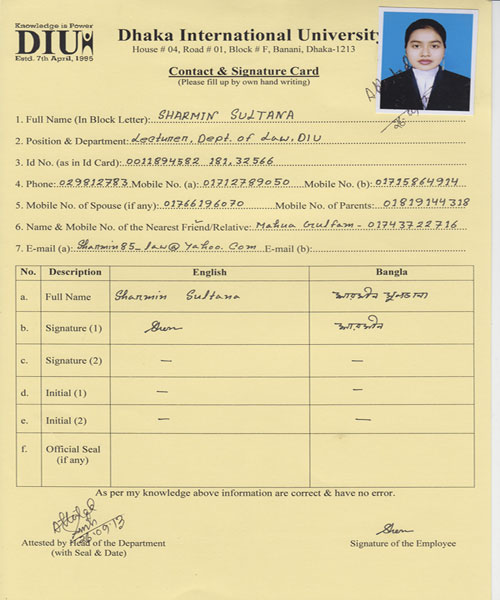 Knowledge is Power
DIU
Estd. 7th April, 1995
Dhaka International University
House # 04, Road # 01, Block # F, Banani, Dhaka-1213
Contact & Signature Card
(Please fill up by own hand writing)
1. Full Name (In Block Letter): SHARMIN SULTANA
2. Position & Department: Lecturer, Dept. of Law, DIU
3. Id No. (as in Id Card): 0011894582 181, 32566
4. Phone: 029812783 Mobile No. (a): 01712789050 Mobile No. (b): 01715864914
5. Mobile No. of Spouse (if any): 01766196070 Mobile No. of Parents: 01819144318
6. Name & Mobile No. of the Nearest Friend/Relative: Mahua Gulfam - 01743722716
7. E-mail (a): Sharmin85_law@yahoo.com E-mail (b):
No. Description English Bangla
a. Full Name Sharmin Sultana শারমীন সুলতানা
b. Signature (1) শারমীন
c. Signature (2) — —
d. Initial (1) — —
e. Initial (2) — —
f. Official Seal
(if any)
As per my knowledge above information are correct & have no error.
Attested by Head of the Department
(with Seal & Date)
Signature of the Employee